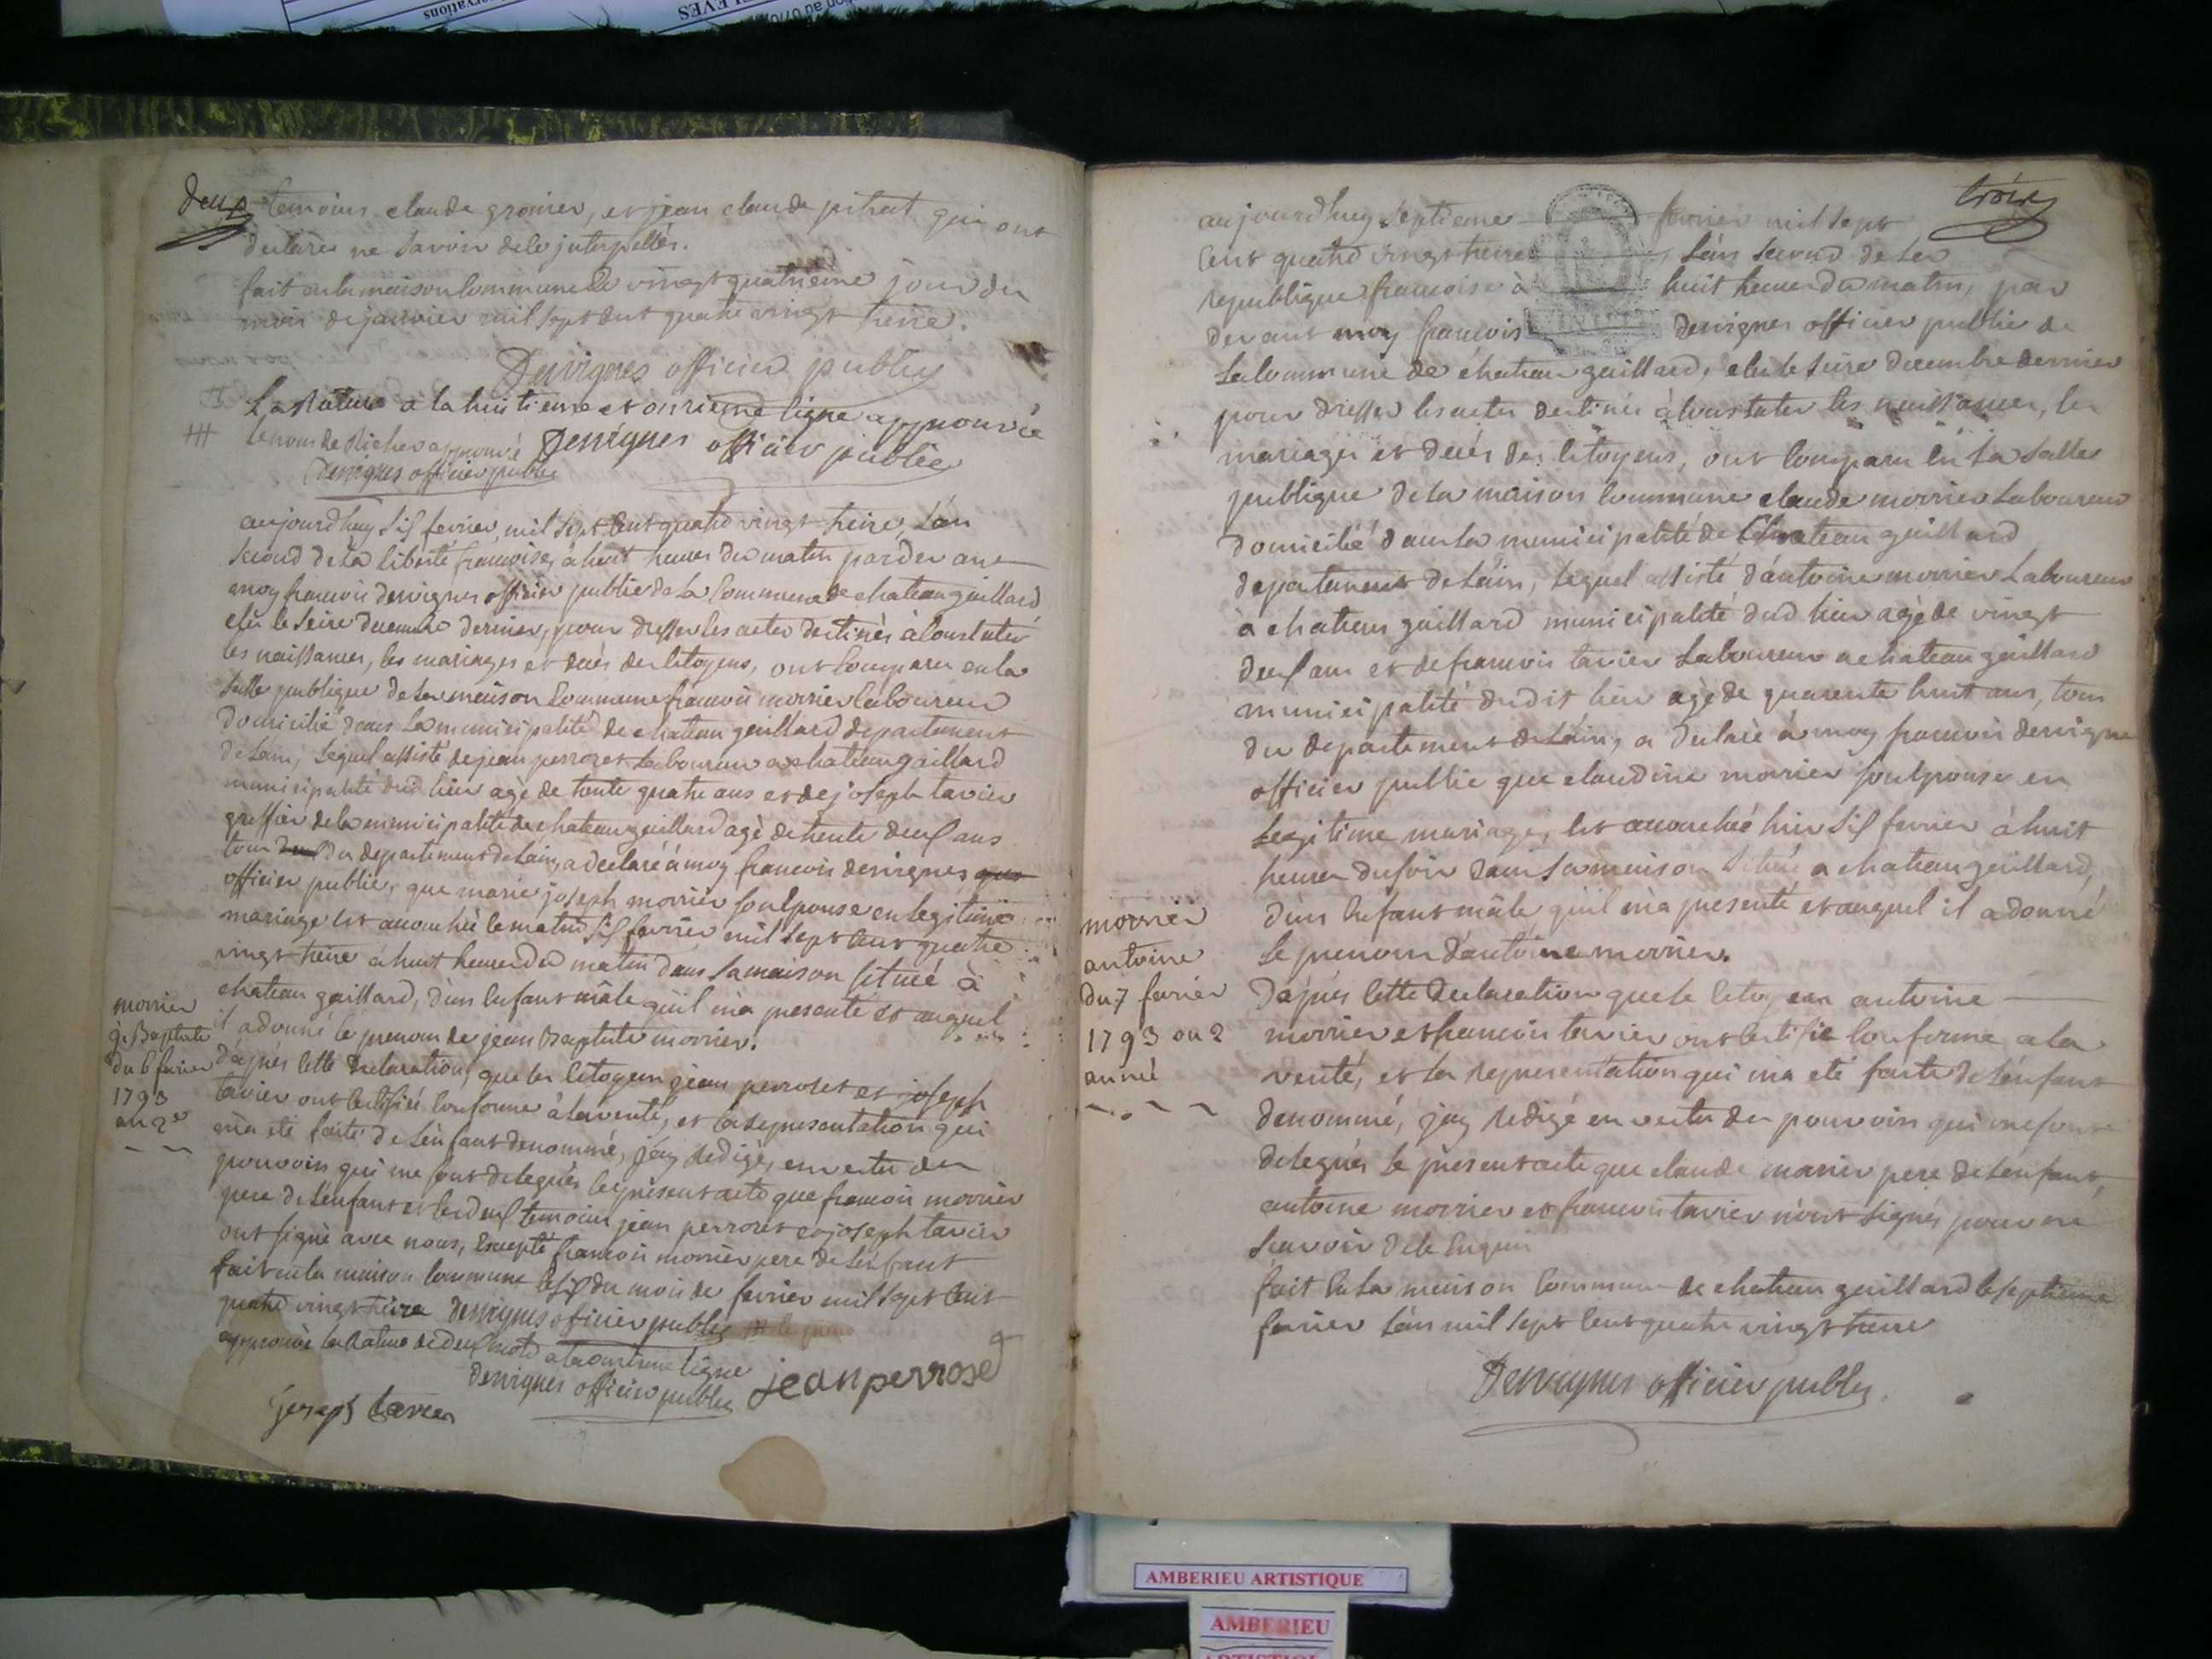 deux
temoins claude gronier, et jean claude pitrat qui ont
declarés ne savoir de le jnterpellés.
fait en la maison commune le vingt quatrieme jour du
mois de janvier mil sept cent quatre vingt treize.
Desvignes officier public
La rature a la huitieme et onzieme ligne approuvée
le nom de approuvé Desvignes officier public
Desvignes officier public
aujourdhuy six fevrier, mil sept cent quatre vingt treize, l'an
second de la liberté francoise, à huit heures du matin pardevant
moy francois desvignes officier public de la commune de chateau gaillard
elu le seize decembre dernier, pour dresser les actes destinés à constater
les naissances, les mariages et decès des citoyens, ont comparu en la
salle publique de la maison commune francois morrier laboureur
domicilié dans la municipalité de chateau gaillard departement
de l'ain, lequel assisté de jean perroset laboureur a chateau gaillard
municipalité dud lieu agè de trente quatre ans et de joseph tavier
greffier de la municipalité de chateau gaillard agè de trente deux ans
tous du departement de l'ain, a declaré à moy francois desvignes
officier public, que marie joseph morrier son epouse en legitime
mariage est accouchée le matin six fevrier mil sept cent quatre
vingt treize à huit heures du matin dans sa maison située à
chateau gaillard, d'un enfant mâle qu'il m'a presenté et auquel
il a donné le prenom de jean Baptiste morrier.
morrier
j. Baptiste
du 6 fevrier
1793
an 2e
d'après cette declaration, que les citoyens jean perroset et joseph
tavier ont certifié conforme à la verité, et la representation qui
m'a eté faite de l'enfant denommé, j'ay redigé, en vertu des
pouvoirs qui me sont delegués le present acte que francois morrier
pere de l'enfant et les deux temoins jean perroset et joseph tavier
ont signé avec nous, excepté francois morrier pere de l'enfant
fait en la maison commune le six du mois de fevrier mil sept cent
quatre vingt treize desvignes officier public
approuvé la rature de deux mots a la onzieme ligne
desvignes officier public jean perroset
joseph tavier
trois
aujourdhuy septieme fevrier mil sept
cent quatre vingt treize l'an second de la
republique francoise à huit heures du matin, par
devant moy francois desvignes officier public de
la commune de chateau gaillard, elu le seize decembre dernier
pour dresser les actes destinés à constater les naissances, les
mariages et decès des citoyens, ont comparu en la salle
publique de la maison commune claude morrier laboureur
domicilié dans la municipalité de Chateau gaillard
departement de l'ain, lequel assisté d'antoine morrier laboureur
à chateau gaillard municipalité dud lieu agè de vingt
deux ans et de francois tavier laboureur a chateau gaillard
municipalité dudit lieu agè de quarente huit ans, tous
du departement de l'ain, a declaré à moy francois desvigne
officier public que claudine morrier son epouse en
legitime mariage, est accouchée hier six fevrier à huit
heures du soir dans sa maison située a chateau gaillard,
d'un enfant mâle qu'il m'a presenté et auquel il a donné
le prenom d'antoine morrier.
morrier
antoine
du 7 fevrier
1793 an 2
année
d'après cette declaration que le citoyen antoine
morrier et francois tavier ont certifié conforme a la
verité, et la representation qui m'a eté faite de l'enfant
denommé, j'ay redigé en vertu des pouvoirs qui me sont
delegués le present acte que claude morrier pere de l'enfant,
antoine morrier et francois tavier n'ont signés pour ne
scavoir de le enquis
fait en la maison commune de chateau gaillard le septieme
fevrier l'an mil sept cent quatre vingt treize
Desvignes officier public.
AMBERIEU ARTISTIQUE
AMBERIEU